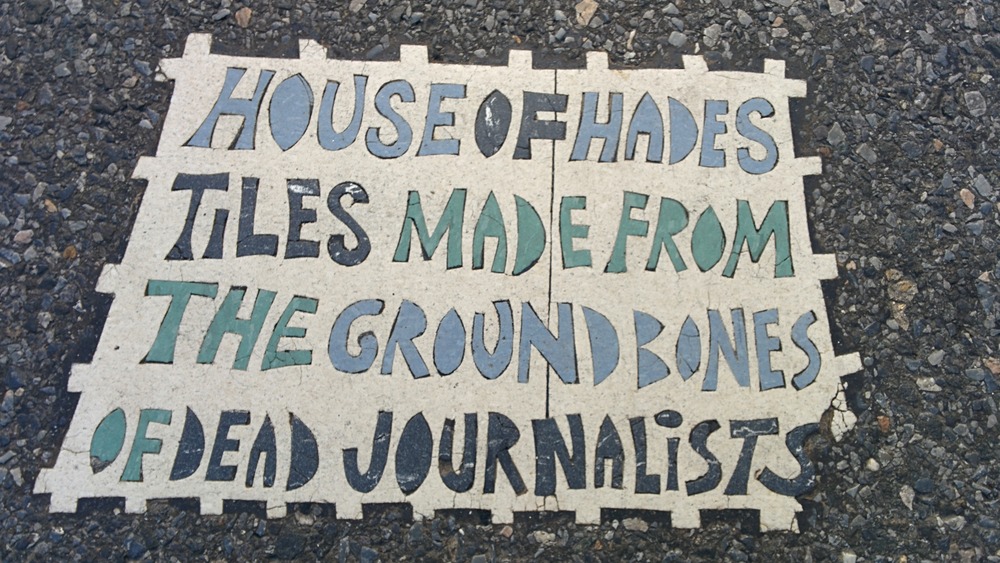 HOUSE OF HADES
TiLES MADE FROM
THE GROUND BONES
OF DEAD JOURNALiSTS